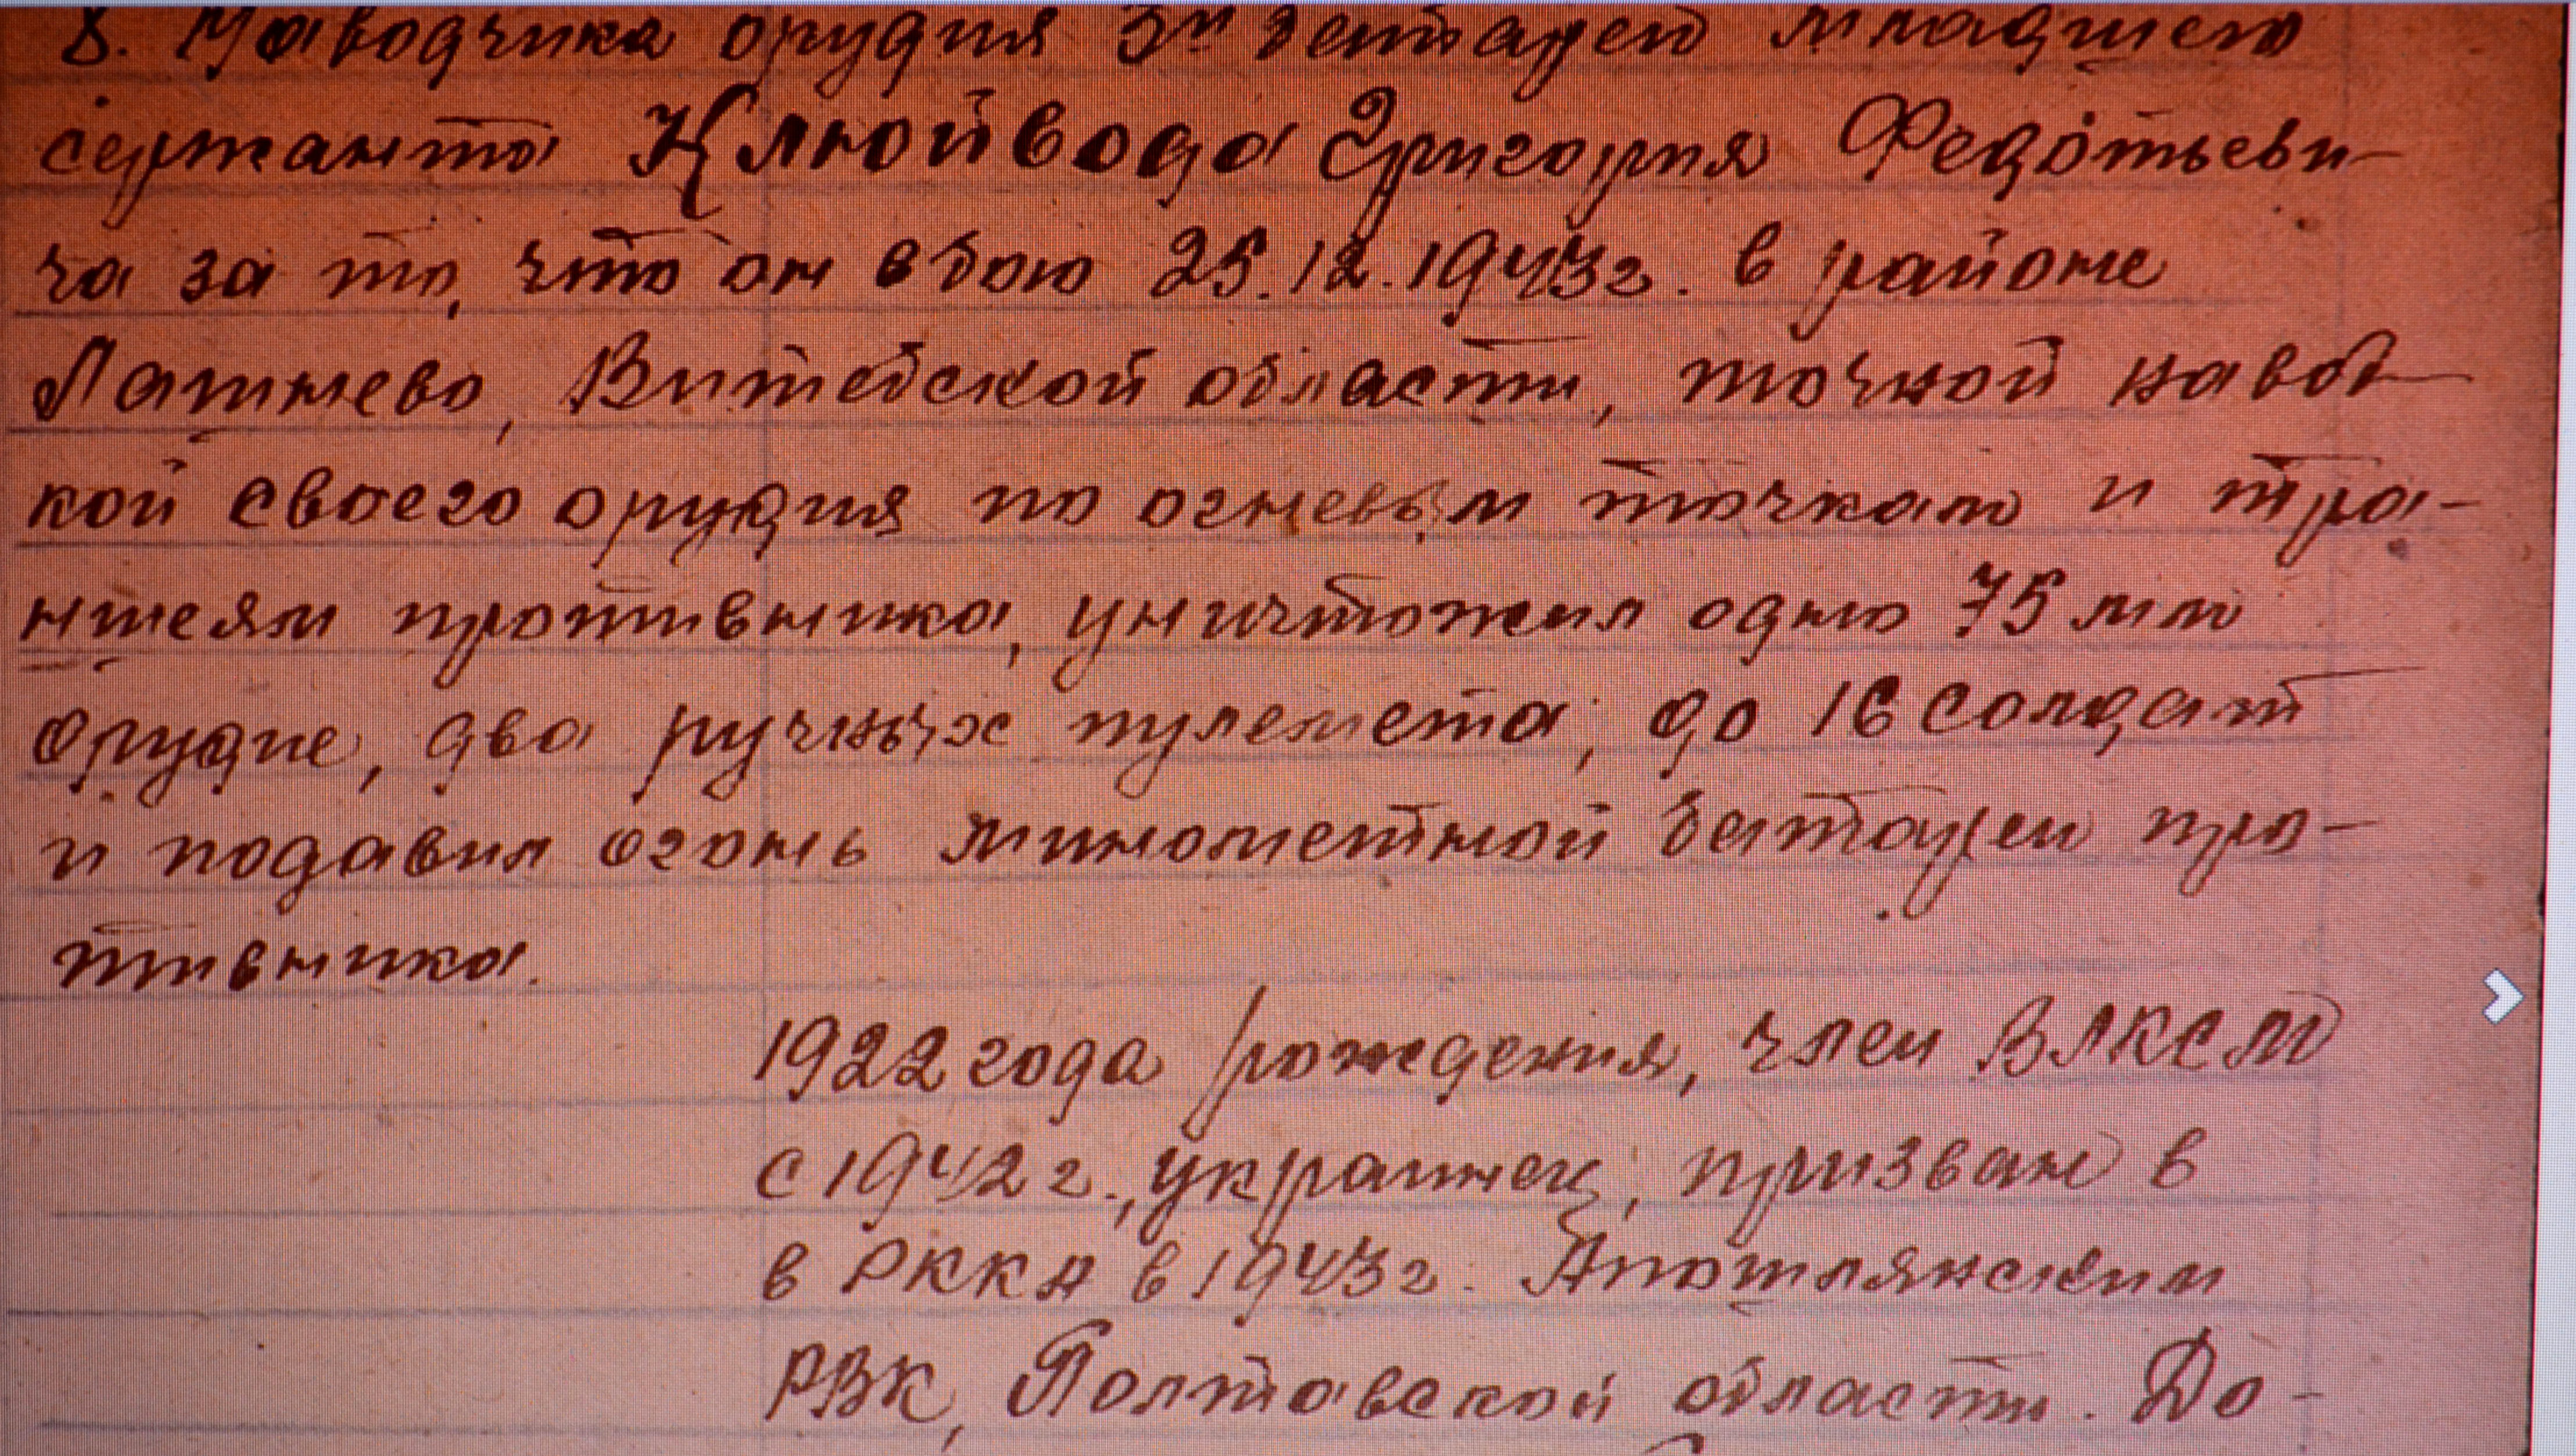 8. Наводчика орудия 3й батареи младшего
сержанта Клюйвода Григория Федотьеви-
ча за то, что он в бою 25.12.1943г. в районе
Лашнево, Витебской области, точной навод-
кой своего орудия по огневым точкам и тра-
ншеям противника, уничтожил одно 75 мм
орудие, два ручных пулемета, до 16 солдат
и подавил огонь минометной батареи про-
тивника.
1922 года рождения, член ВЛКСМ
с 1942 г., украинец, призван в
в РККА в 1943г.
РВК, Полтавской области. До-